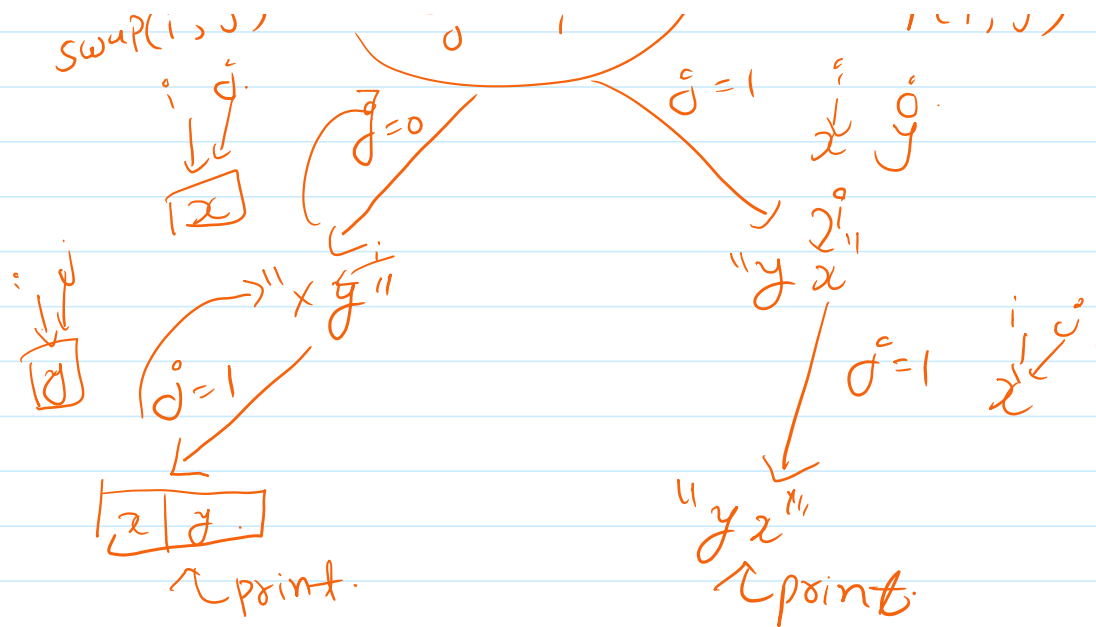 swap(i, j)
0 1
(i, j)
i j
x
j=0
j=1
i j
x y
i
"x y"
i
"y x"
i j
y
j=1
j=1
i j
x
x y
"y x"
print.
print.